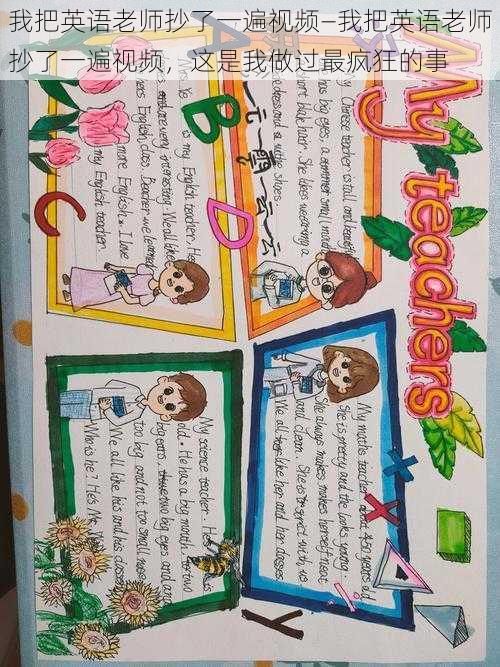 我把英语老师抄了一遍视频—我把英语老师
抄了一遍视频，这是我做过最疯狂的事
My teachers
My Chinese teacher is tall and
has big eyes, a small
short blak hair. She likes wearing a
dress and a white shoes.
is my English teacher. Her
and are very interesting. We all like
English class. Because we learned
more English. I love
my English teacher.
My maths teacher about years old
She is pretty and the looks young.
She always makes makes herself neat
and clean. She is strict with us
We all like her and her
My science teacher. He's
old. He has a big mouth.
big ears, two big eyes and
too big and not too small nose
We all like his and his
Who is he? He's Mr.
A
B
C
D
X
X
y